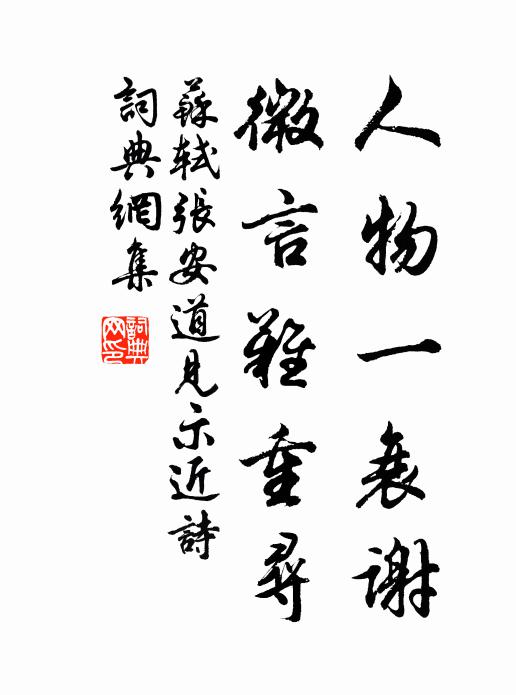 人物一衰谢
微言難重尋
蘇軾張安道見示近詩
詞典網集
詞典网印